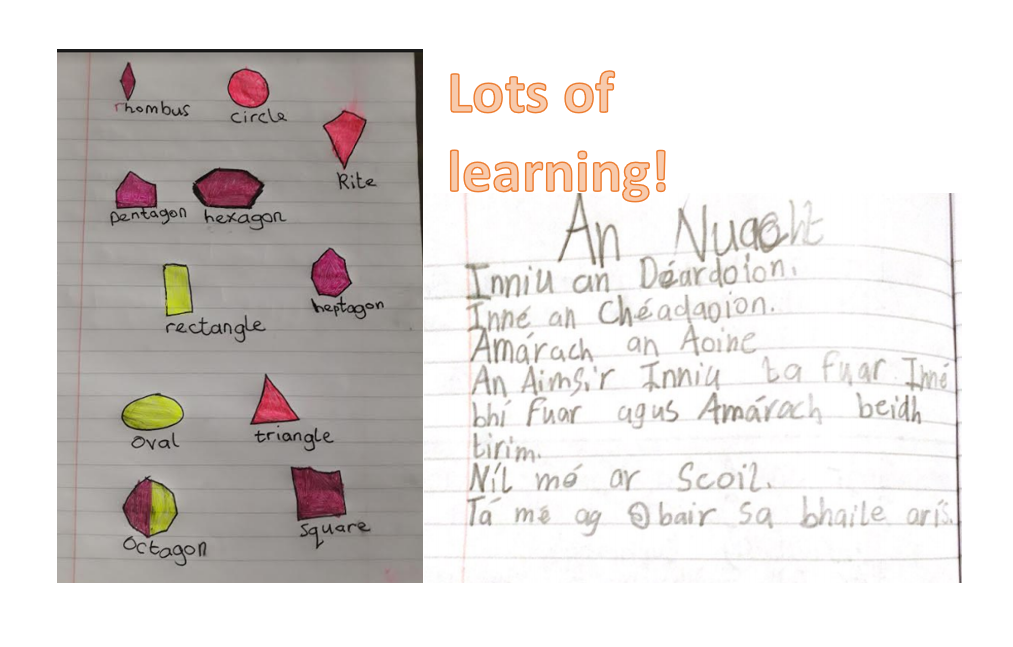 Lots of
learning!
rhombus
circle
Kite
pentagon
hexagon
rectangle
heptagon
oval
triangle
Octagon
Square
An Nuacht
Inniu an Déardoion.
Inné an Chéadaoion.
Amárach an Aoine
An Aimsir Inniu ta fuar Inné
bhí Fuar agus Amárach beidh
tirim.
Níl mé ar Scoil.
Tá mé ag Obair Sa bhaile arís.